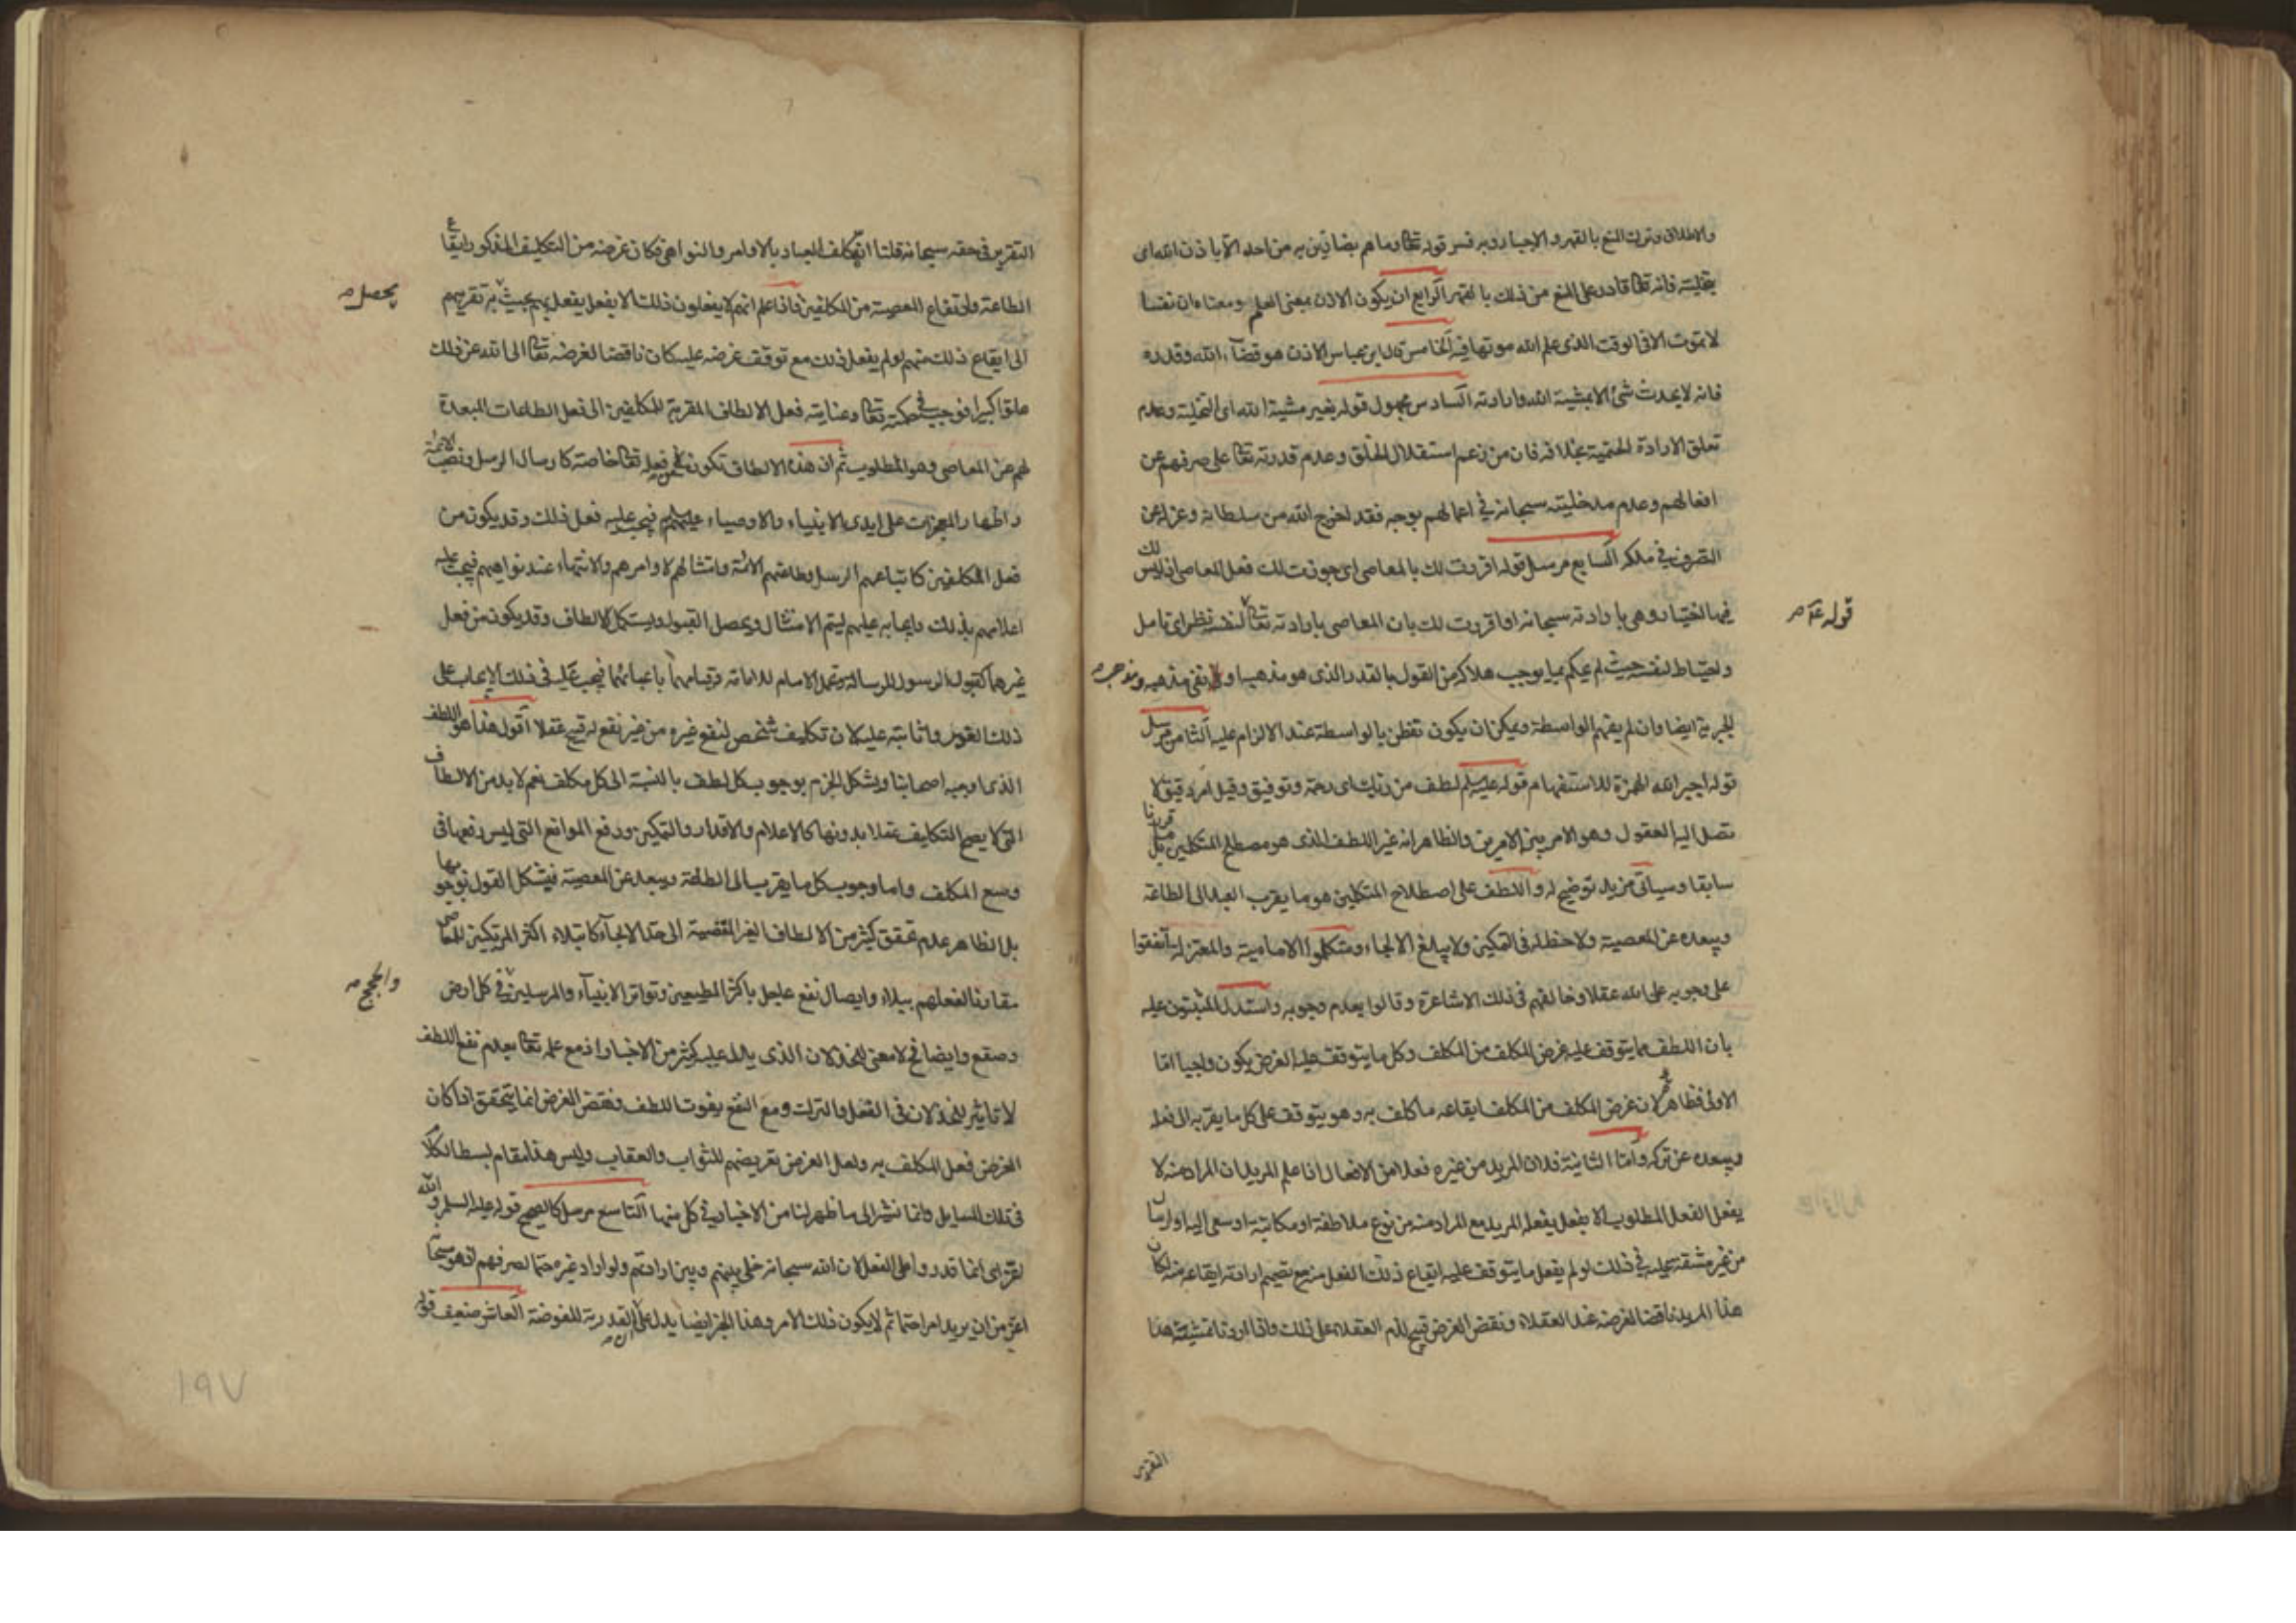 والاطلاق وترك المنع بالقهر والاجبار وبه فسر قوله تعا وما هم بضارين به من احد الا باذن الله اى
بتخليته فانه تعا قادر على المنع من ذلك بالقهر الرابع ان يكون الاذن بمعنى العلم ومعناه ان نفسا
لا تموت الا فى الوقت الذى علم الله موتها فيه الخامس قال ابن عباس الاذن هو قضآء الله وقدره
فانه لا يحدث شئ الا بمشية الله وارادته السادس مجهول قوله بغير مشية الله اى التخلية وعدم
تعلق الارادة الحتمية بخلافه فان من زعم استقلال الخلق وعدم قدرته تعا على صرفهم عن
افعالهم وعدم مدخليته سبحانه في اعمالهم بوجه فقد اخرج الله من سلطانه وعزله عن
التصرف في ملكه السابع مرسل قوله اقررت لك بالمعاصى اى جوزت لك فعل المعاصى اذ ليس لك
قوله عۤ
فيها اختيار وهى بارادته سبحانه او اقررت لك بان المعاصى بارادته تعا لنفسه نظر اى تامل
واحتاط لنفسه حيث لم يحكم بما يوجب هلاكه من القول بالقدر الذى هو مذهبه او نفى مذهبه ومذهب
الجبرية ايضا وان لم يفهم الواسطة ويمكن ان يكون تفطن بالواسطة عند الالزام عليه الثامن مرسل
قوله اجبر الله الهمزة للاستفهام قوله عليه السلم لطف من ذلك اى رحمة وتوفيق وقيل امر دقيق لا
تصل اليه العقول وهو الامر بين الامرين والظاهر انه غير اللطف الذى هو مصطلح المتكلمين بل ما قررنا
سابقا وسياتى مزيد توضيح له واللطف على اصطلاح المتكلمين هو ما يقرب العبد الى الطاعة
ويبعده عن المعصية ولا حظ له فى التمكين ولا يبلغ الالجاء ومتكلموا الامامية والمعتزلة اتفقوا
على وجوبه على الله عقلا وخالفهم فى ذلك الاشاعرة وقالوا بعدم وجوبه واستدل المثبتون عليه
بان اللطف مما يتوقف عليه غرض المكلف من المكلف وكل ما يتوقف عليه الغرض يكون واجبا اما
الاولى فظاهر لان غرض المكلف من المكلف ايقاعه ما كلف به وهو يتوقف على كل ما يقربه الى فعله
ويبعده عن تركه وامّا الثانية فلان المريد من غيره فعلا من الافعال اذا علم المريد ان المراد منه لا
يفعل الفعل المطلوب الا بفعل يفعله المريد مع المراد منه من نوع ملاطفة او مكاتبة او سعى اليه او ارسال
من غير مشقة عليه في ذلك لو لم يفعل ما يتوقف عليه ايقاع ذلك الفعل منه مع تصميم ارادته ايقاعه منه لكان
هذا المريد ناقضا لغرضه عند العقلاء ونقض الغرض قبيح لذم العقلاء على ذلك واذا اردنا تمشية هذا
التقرير
التقرير فى حقه سبحانه قلنا انه كلف العباد بالاوامر والنواهى فكان غرضه من التكليف المذكور ايقاع
الطاعة وارتفاع المعصية من المكلفين فاذا علم انهم لا يفعلون ذلك الا بفعل يفعل بهم بحيث يحصل به تقربهم
الى ايقاع ذلك منهم لو لم يفعل ذلك مع توقف غرضه عليه كان ناقضا لغرضه تعا الى الله عن ذلك
علوا كبيرا فوجب في حكمته تعا وعنايته فعل الالطاف المقربة للمكلفين الى فعل الطاعات المبعدة
لهم عن المعاصى وهو المطلوب ثم ان هذه الالطاف تكون من فعله تعا خاصة كارسال الرسل ونصب الائمة
واظهار المعجزات على ايدى الانبياء والاوصياء عليهم السلم فيجب عليه فعل ذلك وقد يكون من
فعل المكلفين كاتباعهم الرسل وطاعتهم الائمة وامتثالهم لاوامرهم والانتهاء عند نواهيهم فيجب عليه
اعلامهم بذلك وايجابه عليهم ليتم الامتثال ويحصل القبول ويستكمل الالطاف وقد يكون من فعل
غيرهما كقبول الرسول للرسالة وتحمل الامام للامامة وقيامهما باعبائهما فيجب عليه فى ذلك الايجاب على
ذلك الغير واثابته عليه لان تكليف شخص لنفع غيره من غير نفع له قبيح عقلا اقول هذا هو اللطف
الذى اوجبه اصحابنا ويشكل الجزم بوجوب كل لطف بالنسبة الى كل مكلف نعم لا بد من الالطاف
التى لا يصح التكليف عقلا بدونها كالاعلام والاقدار والتمكين ورفع الموانع التى ليس رفعها فى
وسع المكلف واما وجوب كل ما يقرب الى الطاعة ويبعد عن المعصية فيشكل القول بوجوبها
بل الظاهر عدم تحقق كثير من الالطاف الغير المفضية الى حد الالجآء كابتلاء اكثر المرتكبين للمعاصى
مقارنا لفعلهم ببلاء وايصال نفع عاجل باكثر المطيعين وتواتر الانبيآء والمرسلين والحجج في كل ارض
وصقع وايضا فح لا معنى للخذلان الذى يدل عليه كثير من الاخبار اذ مع علمه تعا بعدم نفع اللطف
لا تاثير للخذلان فى الفعل والترك ومع النفع يفوت اللطف ونقض الغرض انما يتحقق اذا كان
الغرض فعل المكلف به ولعل الغرض تعريضهم للثواب والعقاب وليس هذا مقام بسط الكلام
فى تلك المسايل وانما نشير الى ما ظهر لنا من الاخبار في كل منها التاسع مرسل كالصحيح قوله عليه السلم والله
اعز اى انما قدروا على الفعل لان الله سبحانه خلى بينهم وبين ارادتهم ولو اراد غيره حتما لصرفهم اذ هو سبحانه
اعز من ان يريد امرا حتما ثم لا يكون ذلك الامر وهذا الخبر ايضا يدل على ان القدرية المفوضة العاشر ضعيف قوله
١٩٧